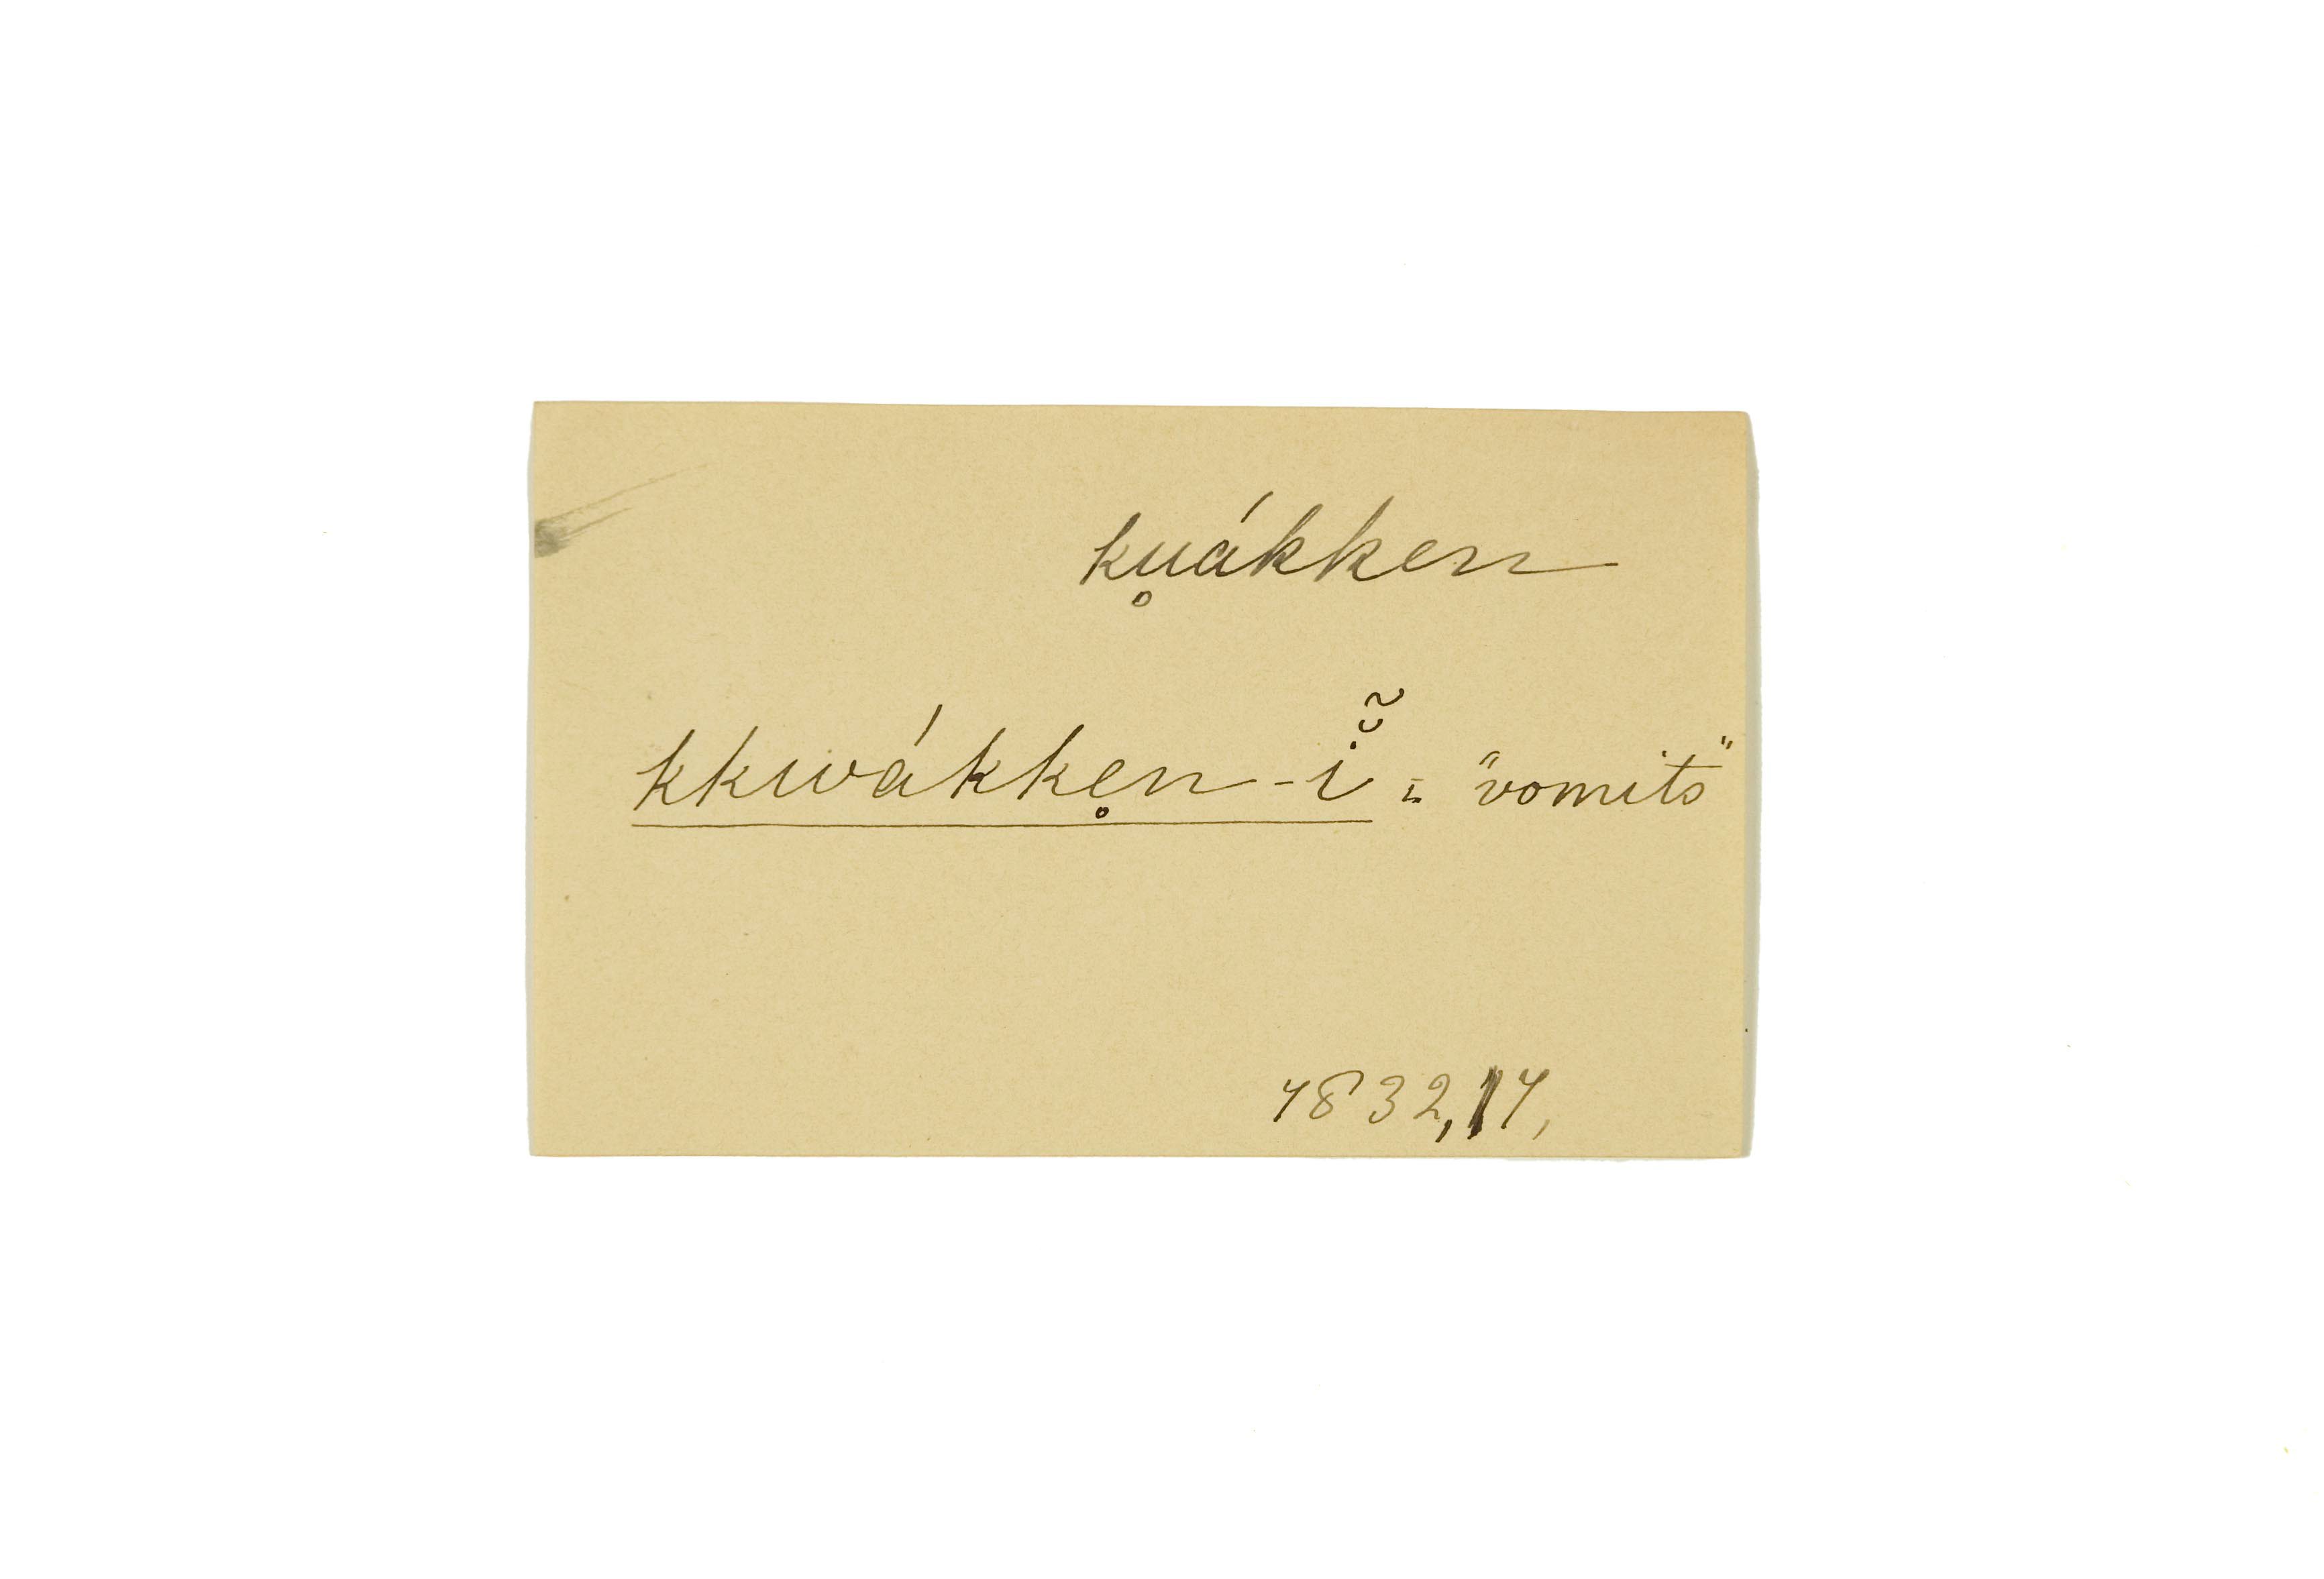 ku̥ákken
kkwákke̥n-ĭ̃ = "vomits"
4832,14,